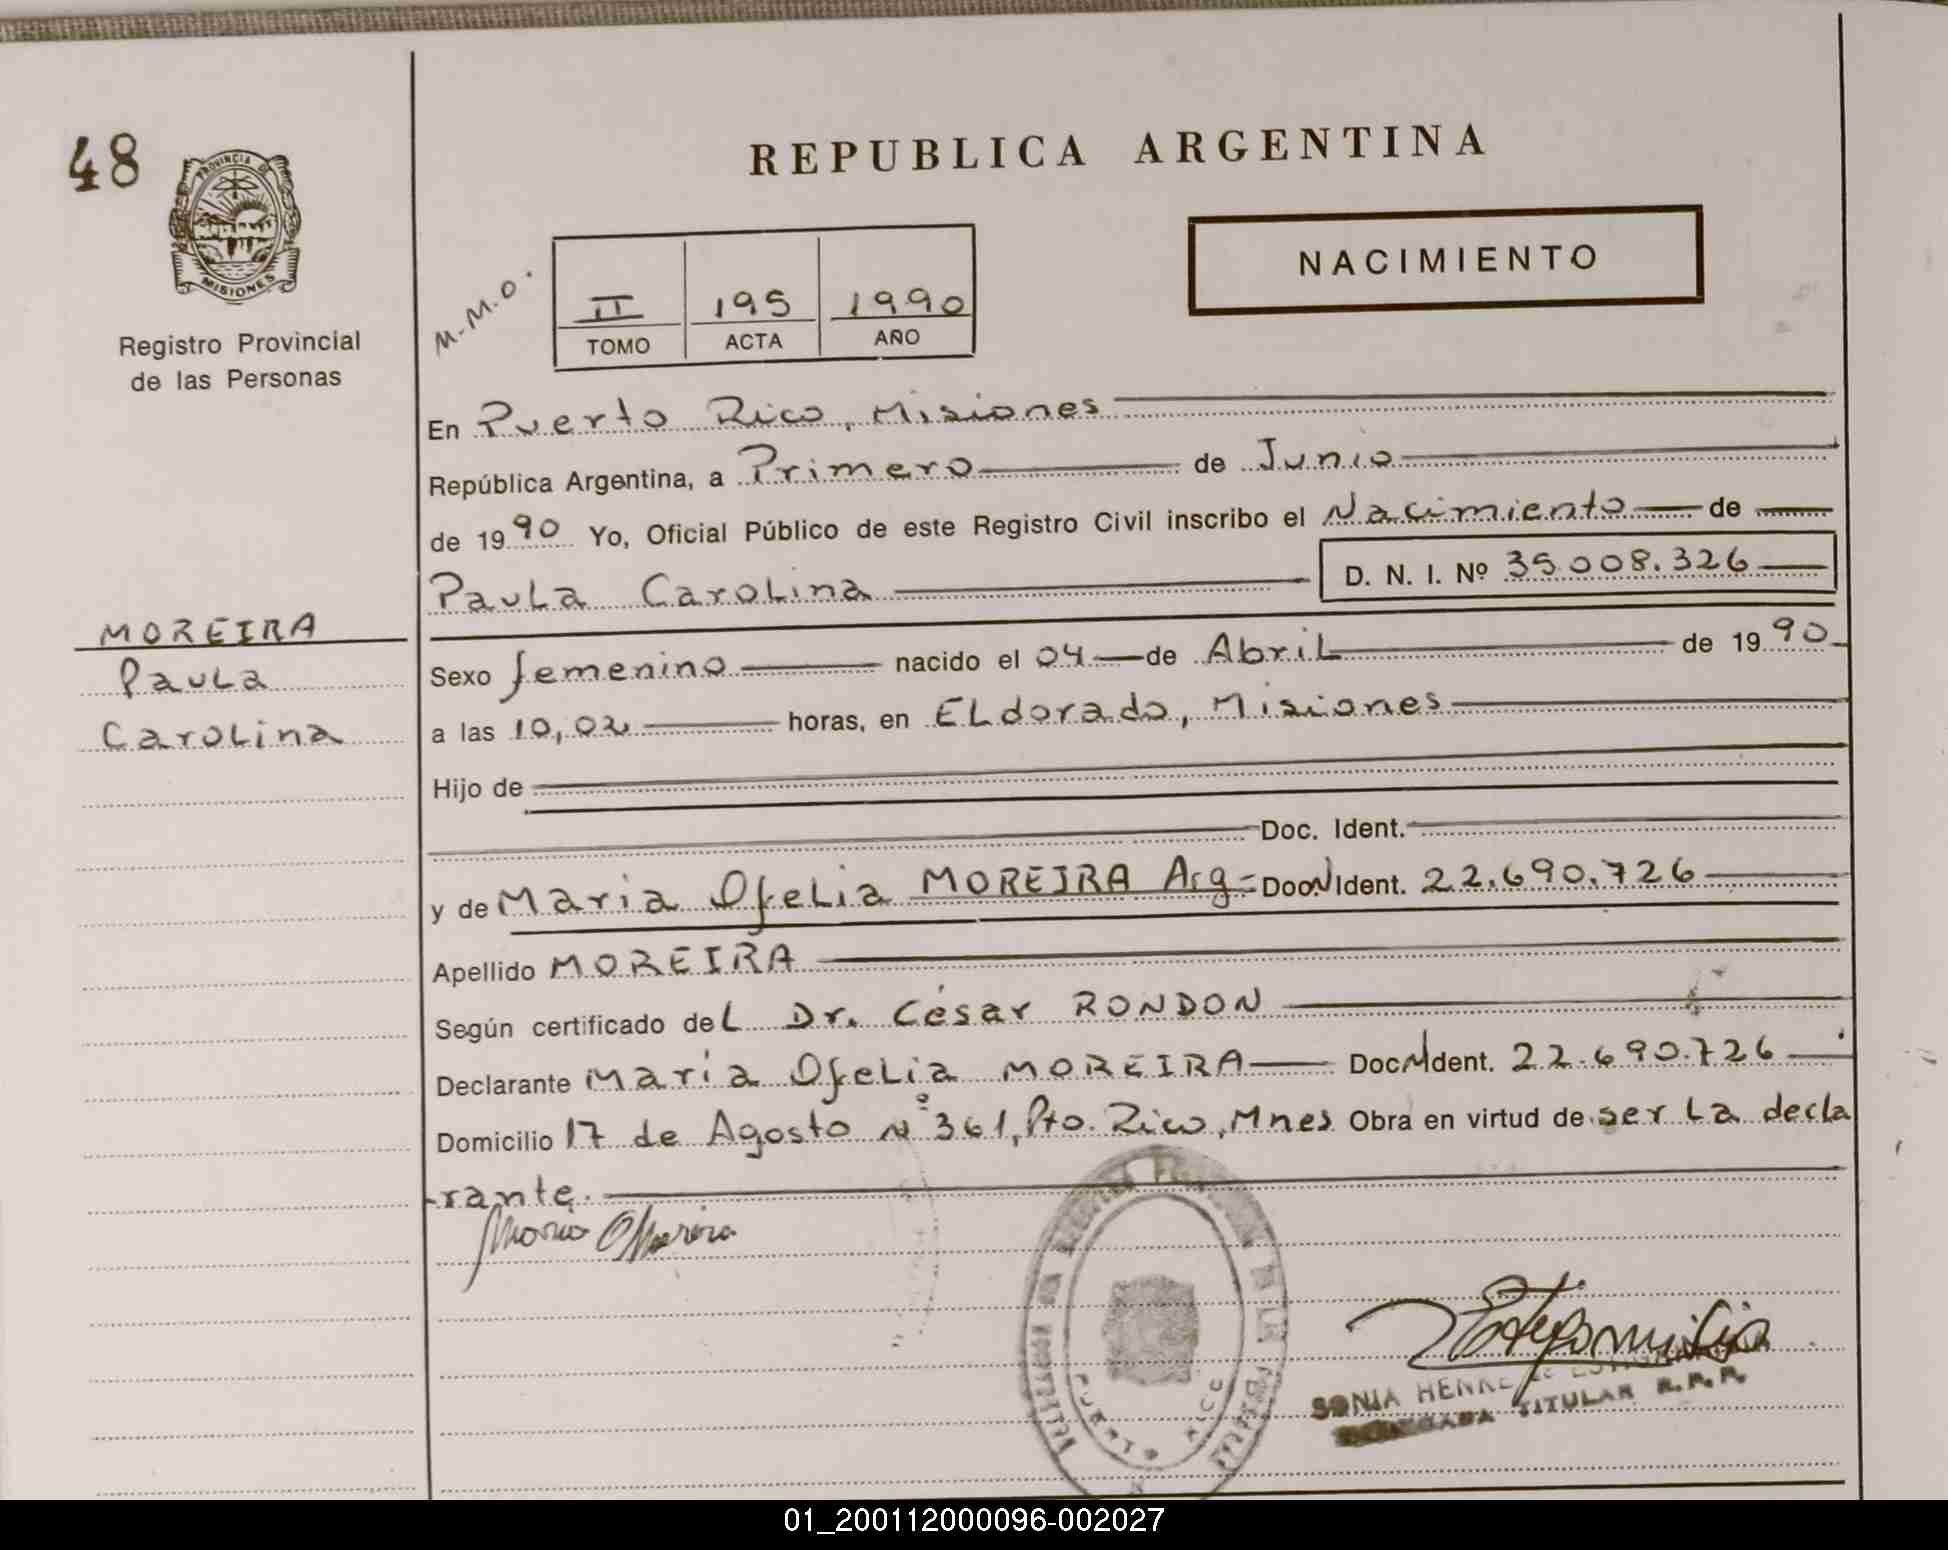 48
PROVINCIA DE
MISIONES
Registro Provincial
de las Personas
REPUBLICA ARGENTINA
NACIMIENTO
M.M.O.
II 195 1990
TOMO ACTA AÑO
En Puerto Rico, Misiones
República Argentina, a Primero de Junio
de 1990 Yo, Oficial Público de este Registro Civil inscribo el Nacimiento de
Paula Carolina D. N. I. Nº 35.008.326
MOREIRA
Paula
Carolina
Sexo femenino nacido el 04 de Abril de 1990
a las 10,02 horas, en Eldorado, Misiones
Hijo de
Doc. Ident.
y de Maria Ofelia MOREIRA Arg- Doc.N Ident. 22.690.726
Apellido MOREIRA
Según certificado del Dr. César RONDON
Declarante María Ofelia MOREIRA Doc.N Ident. 22.690.726
Domicilio 17 de Agosto Nº 361, Pto. Rico, Mnes Obra en virtud de ser la decla
-rante.
Maria O Moreira
PUERTO RICO
SONIA HENKE DE
TITULAR R.P.P.
01_200112000096-002027